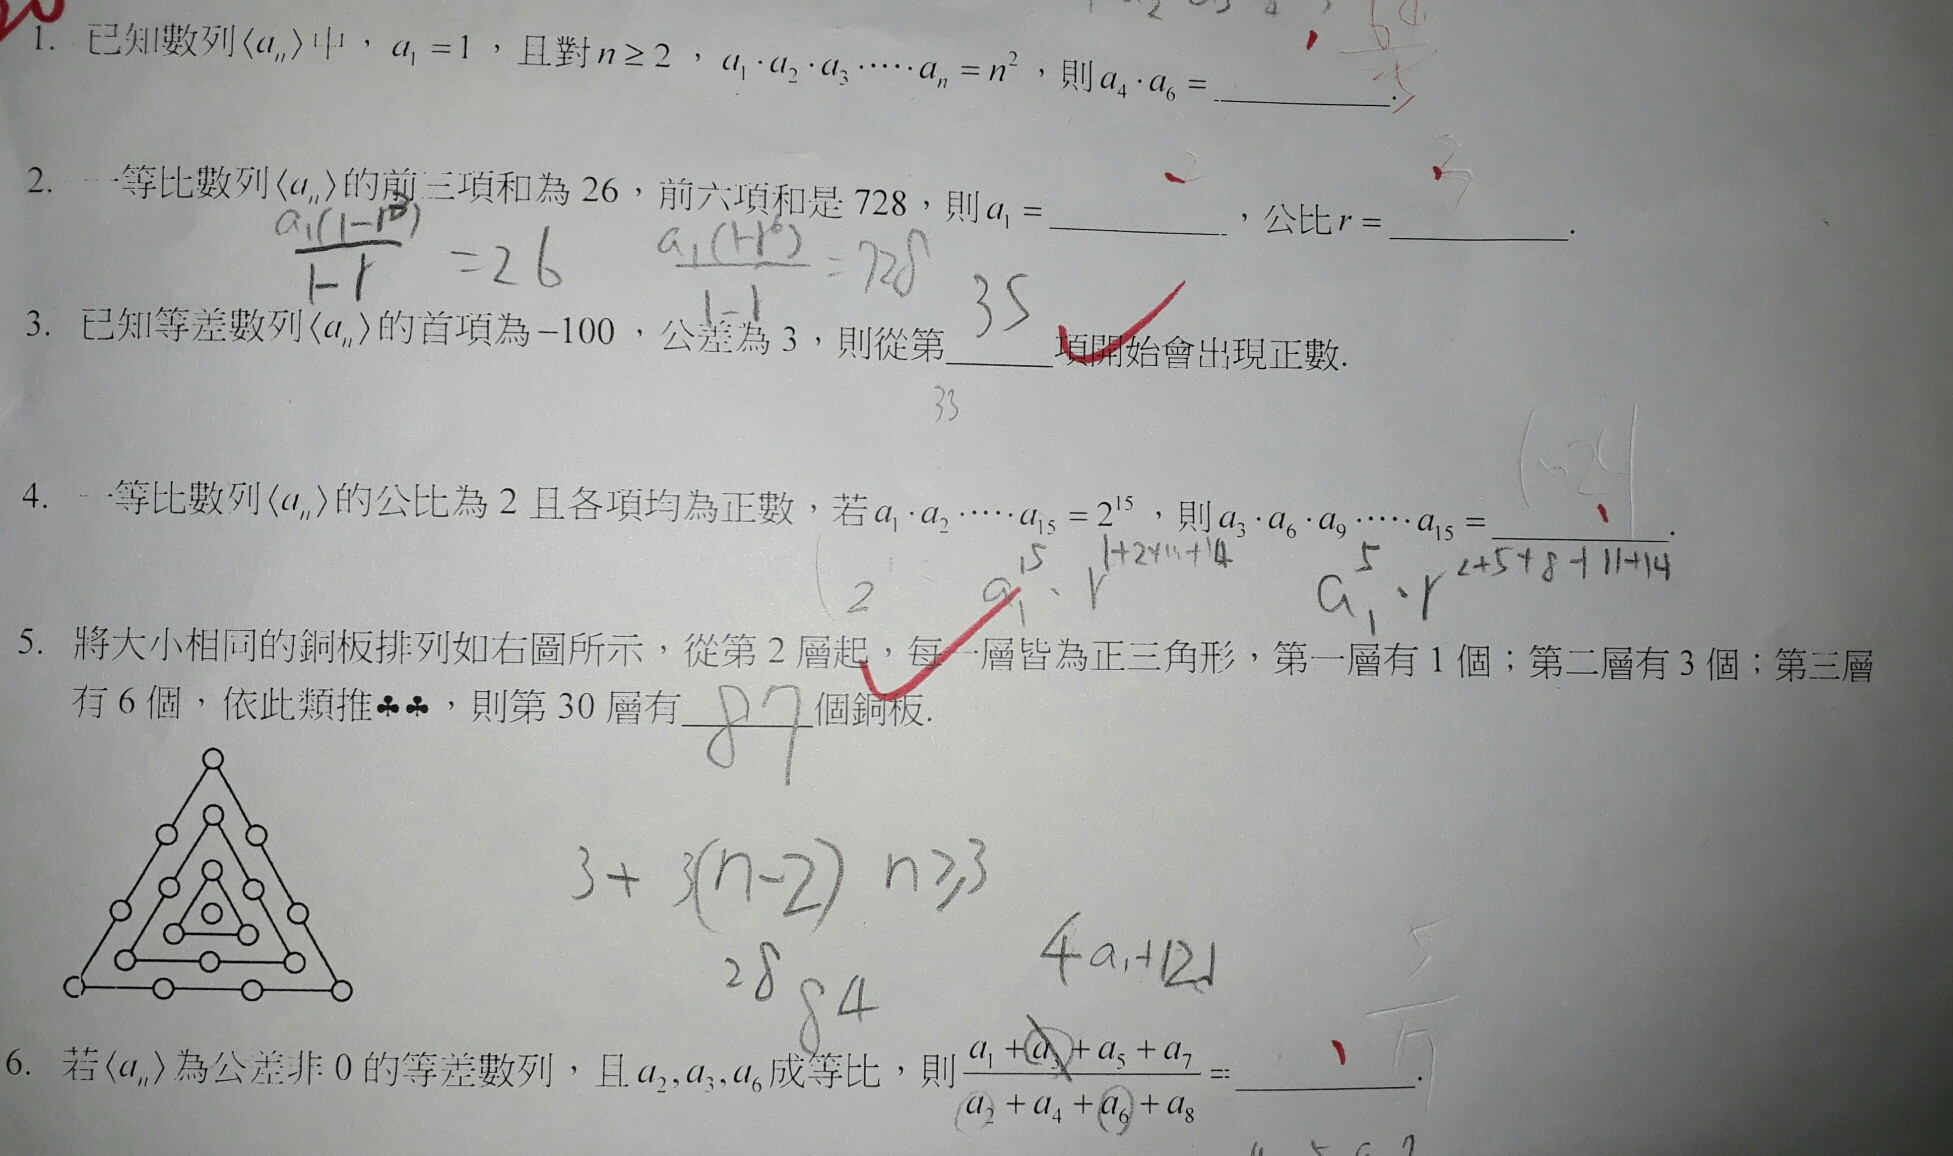 1. 已知數列⟨aₙ⟩中，a₁=1，且對n≥2，a₁·a₂·a₃·····aₙ=n²，則a₄·a₆=______.
2. 一等比數列⟨aₙ⟩的前三項和為26，前六項和是728，則a₁=______，公比r=______.
a₁(1-r³)/(1-r) =26 a₁(1-r⁶)/(1-r) =728
35
3. 已知等差數列⟨aₙ⟩的首項為-100，公差為3，則從第______項開始會出現正數.
33
4. 一等比數列⟨aₙ⟩的公比為2且各項均為正數，若a₁·a₂·····a₁₅=2¹⁵，則a₃·a₆·a₉·····a₁₅=______.
2 a₁¹⁵·r^(1+2+…+14) a₁⁵·r^(2+5+8+11+14)
5. 將大小相同的銅板排列如右圖所示，從第2層起，每一層皆為正三角形，第一層有1個；第二層有3個；第三層
有6個，依此類推♣♣，則第30層有 87 個銅板.
3+3(n-2) n≥3
28 84
4a₁+12d
6. 若⟨aₙ⟩為公差非0的等差數列，且a₂,a₃,a₆成等比，則(a₁+a₃+a₅+a₇)/(a₂+a₄+a₆+a₈)=______.